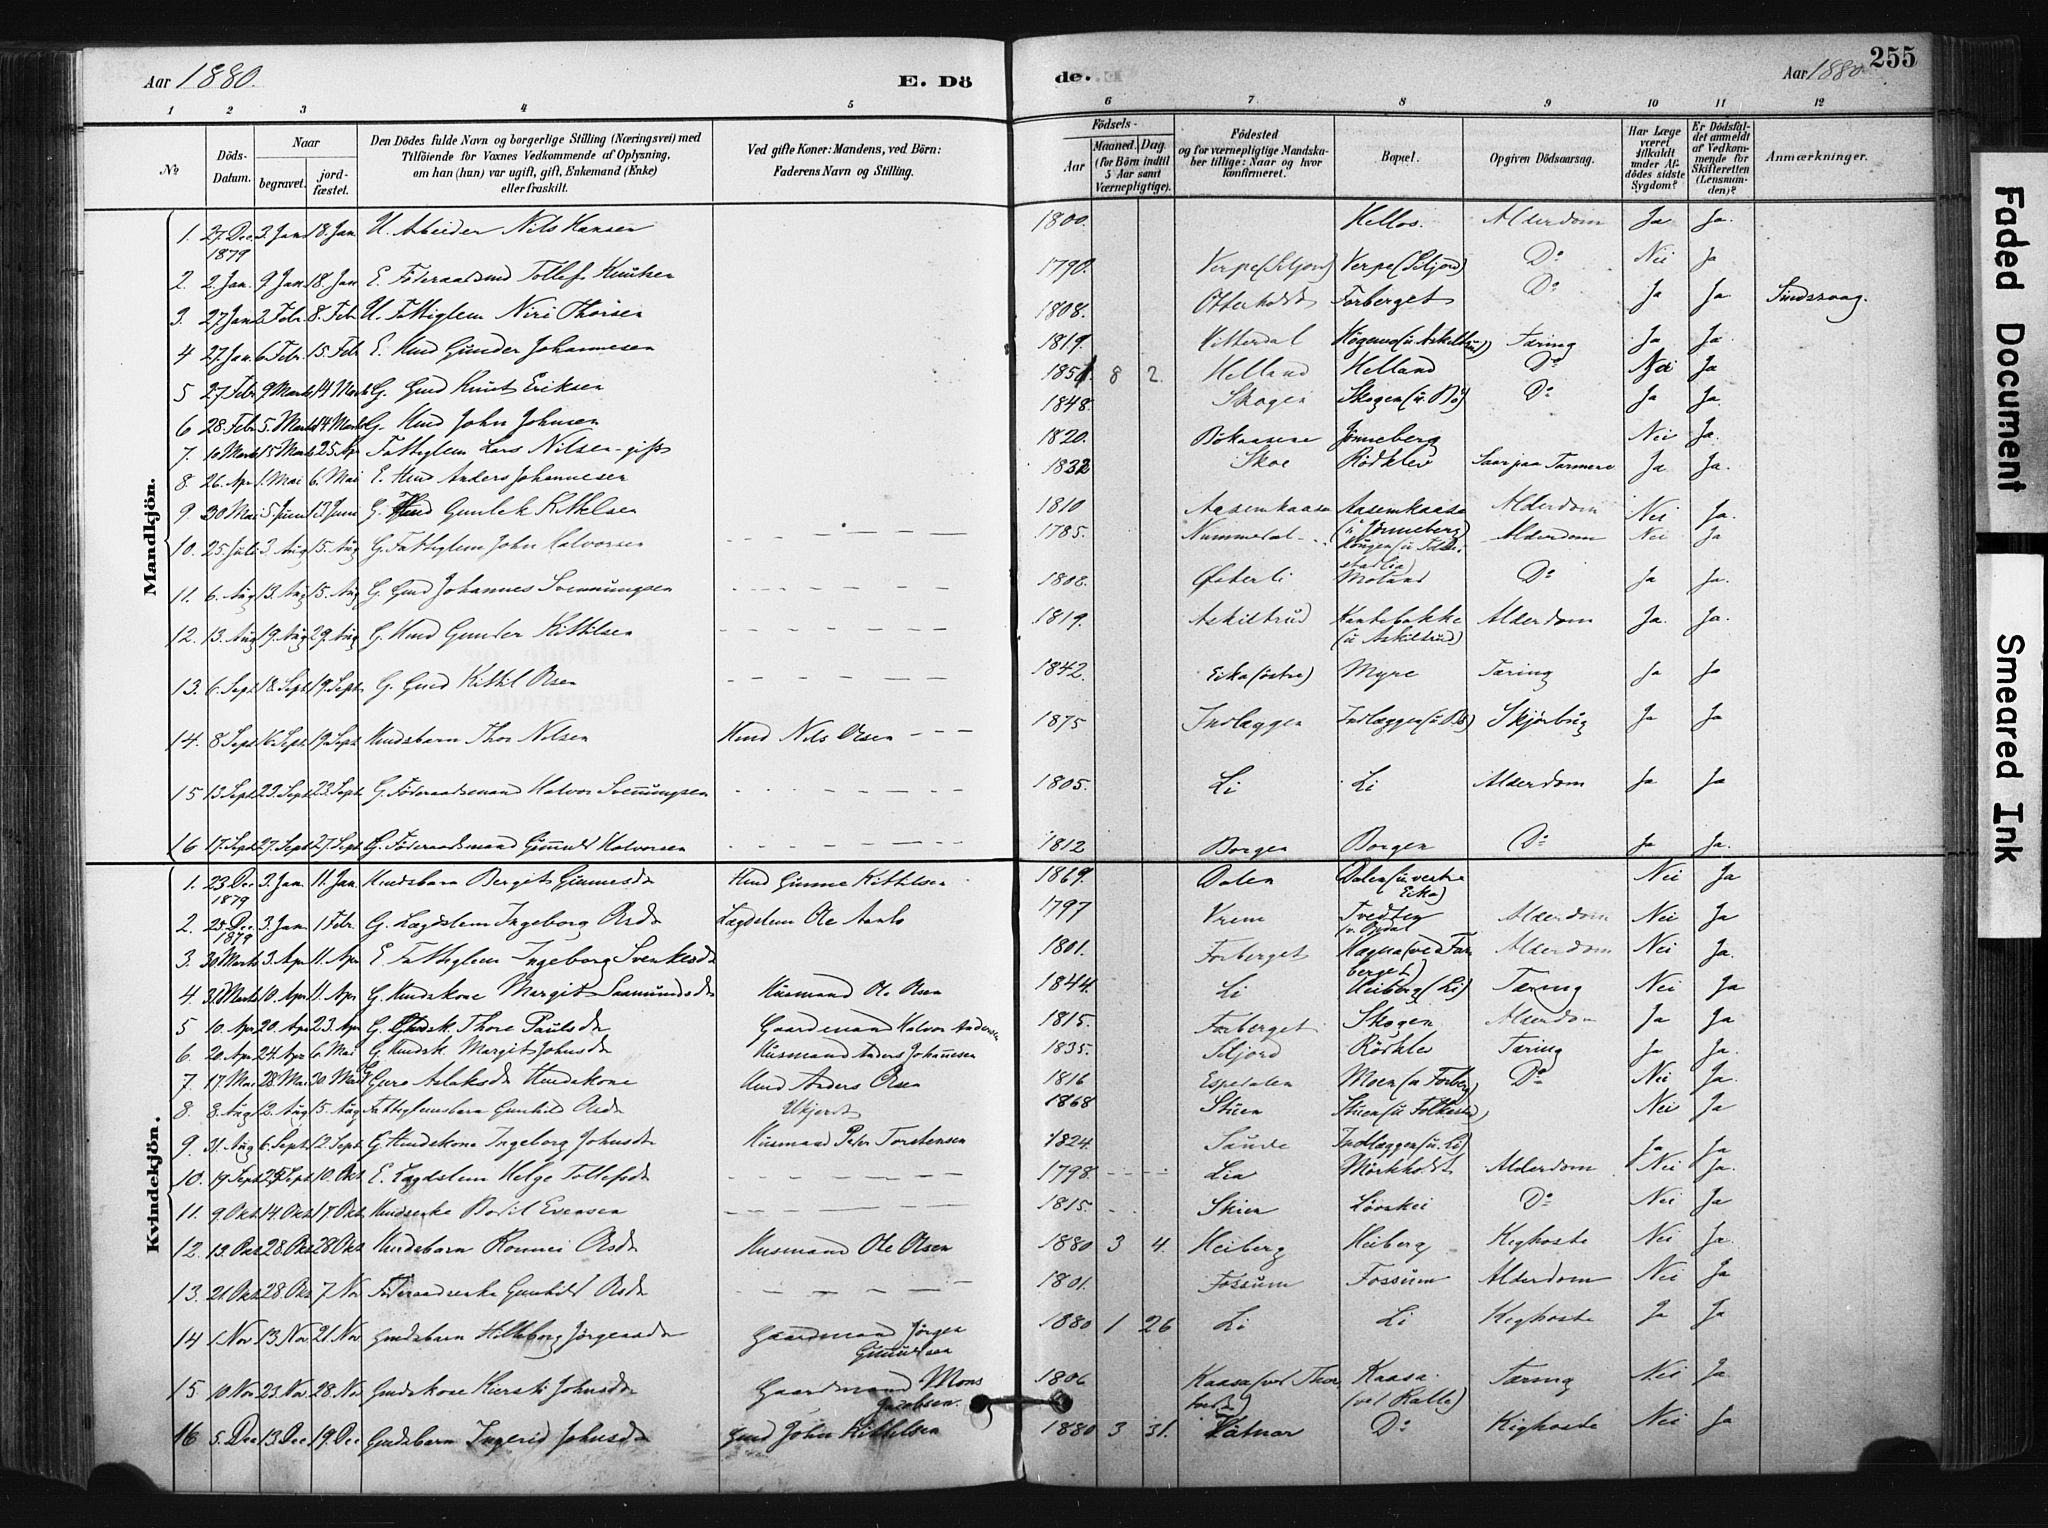 Aar 1880. E. Dö
de. Aar 1880. 255
1 2 3 4 5 6 7 8 9 10 11 12
№ Döds-Datum. Naar begravet. jord-fæstet. Den Dödes fulde Navn og borgerlige Stilling (Næringsvei) med Tilföiende for Voxnes Vedkommende af Oplysning, om han (hun) var ugift, gift, Enkemand (Enke) eller fraskilt. Ved gifte Koner: Mandens, ved Börn: Faderens Navn og Stilling. Födsels- Aar Maaned. Dag. (for Börn indtil 5 Aar samt Værnepligtige). Födested og for værnepligtige Mandskaber tillige: Naar og hvor konfirmeret. Bopæl. Opgiven Dödsaarsag. Har Læge været tilkaldt under Afdödes sidste Sygdom? Er Dödsfaldet anmeldt af Vedkommende for Skifteretten (Lensmanden)? Anmærkninger.
Mandkjön.
1. 27. Dec 1879 3. Jan 18. Jan U. Abeider Nils Hansen 1800. Hellos. Alderdom Ja Ja.
2. 2. Jan. 9 Jan 18. Jan E. Föderaadsmd Tollef Knutsen 1790. Verpe (Siljord) Verpe (Siljord) Do Nei Ja
3. 27 Jan 2 Febr. 8. Febr U. Fattiglem Niri Thorsen 1808. Otterholdt Forberget Do Ja Ja. Sindssvag.
4 27. Jan. 6 Febr. 15. Febr E. Hmd Gunder Johannesen 1819. Hitterdal Høgemo (u Askiltrud) Tæring Ja Ja.
5 27 Febr 9 Marts 14 Marts G. Gmd Knut Eriksen 1851. 8 2. Helland Helland Do Nei Ja
6 28 Febr 5. Marts 14 Marts G. Hmd John Johnsen 1848. Skogen Skogen (u. Bø) Do Ja Ja.
7. 10 Marts 15 Marts 25 Apr Fattiglem Lars Nilsen - gift 1820. Bökaasene Jønneberg Nei Ja.
8. 26. Apr 1. Mai 6. Mai E. Hmd Anders Johannesen 1832 Skoe Rödklev Saar paa Tarmene Ja Ja.
9. 30 Mai 5. Juni 13 Juni G. Hmd Gunlek Kittelsen 1810 Aasemkaasa Aasemkaasa (u Jønneberg) Alderdom Nei Ja.
10. 25. Juli 3. Aug 15. Aug G. Fattiglem John Halvorsen 1785. Nummedal Alderdom Nei Ja
11. 6. Aug 13. Aug 15. Aug G. Gmd Johannes Svennungsen 1808. Østerli Moland Do Ja Ja.
12. 13. Aug 19. Aug 29. Aug G. Hmd Gunder Kittilsen 1819. Askiltrud Kantebakke (u Askiltrud) Alderdom Ja. Ja.
13. 6. Sept 18. Sept 19. Sept G. Gmd Kittil Olsen 1842. Eika (østre) Myre Tæring Ja Ja
14. 8 Sept 16 Sept. 19. Sept. Hmdsbarn Thor Nilsen Hmd Nils Olsen 1875 Indlæggen Indlæggen (u. Bø) Skjørbug Ja Ja
15 13 Sept. 23. Sept. 23. Sept. G. Föderaadsmand Halvor Svenungsen 1805. Li Li Alderdom Ja Ja
16 17. Sept 27. Sept 27. Sept. G. Föderaadsmand Gunnuld Halvorsen 1812 Borgen Borgen Do Ja Ja.
Kvindekjön.
1. 23 Dec 1879 3. Jan. 11. Jan. Hmdsbarn Bergit Gunnesdr Hmd Gunne Kittilsen 1869. Dalen Dalen (u vestre Eika) Nei Ja
2. 25. Dec. 1879 3. Jan. 1 Febr. G. Lægdslem Ingeborg Olsdr Lægdslem Ole Aanlo 1797 Vreim Tvedten (v. Opdal Alderdom Nei Ja
3. 30 Marts 3. Apr 11. Apr E. Fattiglem Ingeborg Svenkesdr 1801. Forberget Hagna (ved Forberget) Alderdom Nei Ja.
4. 31. Marts 10. Apr. 11. Apr G. Hmdskone Margit Saamundsdr Husmand Ole Olsen 1844. Li Heiberg (Li) Tæring Nei Ja
5 10. Apr 20. Apr 23. Apr G. Gmdsk. Thore Paulsdr Gaardmand Halvor Andersen 1815. Forberget Skogen Alderdom Ja Ja
6. 20. Apr 24. Apr 6. Mai G. Hmdsk. Margit Johnsdr Husmand Anders Johannesen 1835. Siljord Rödklev Tæring Ja Ja.
7. 17. Mai 28. Mai 30 Mai Guro Aslaksdr Hmdskone Hmd Anders Olsen 1816 Espedalen Moen (u Forberg) Do Nei Ja.
8. 8. Aug 12. Aug 15. Aug Fattiglemsbarn Gunhild Olsdr Ukjendt 1868 Stuen Stuen (u Folkestad) Nei Ja
9. 31. Aug 6. Sept. 12. Sept. G. Hmdskone Ingeborg Johnsdr Husmand Peter Torstensen 1824. Saude Indlæggen (u. Li) Ja Ja
10. 19. Sept 25 Sept. 10. Okt. E. Lægdslem Helge Tollefsdr 1798. Lia Mörkholdt Alderdom Nei Ja.
11. 9. Okt. 14. Okt. 17. Okt. Hmdsenke Bodil Evensen 1815. Skien Løvskei Do Nei Ja
12. 13. Okt. 28. Okt. 28 Okt. Hmdsbarn Ronnei Olsdr Husmand Ole Olsen 1880 3 4. Heiberg Heiberg Kighoste Nei Ja.
13. 21. Okt. 28. Okt. 7. Nov Föderaadsenke Gunhild Olsdr 1801. Fossum Fossum Alderdom Nei Ja
14 1. Nov 13. Nov. 21. Nov Gmdsbarn Hilleborg Jørgensdr Gaardmand Jørgen Gunuldsen 1880 1 26 Li Li Kighoste Ja Ja
15 10. Nov. 23. Nov. 28. Nov Gmdskone Kirsti Johnsdr Gaardmand Mons Jacobsen. 1806 Kaasa (ved Kaasa. (ved Kalle) Tæring Nei Ja
16 5. Dec 13. Dec 19. Dec Gmdsbarn Ingerid Johnsdr Gmd John Kittelsen 1880 3 31. Do Kighoste Nei Ja
E. Döde og
Begravede.
Faded Document
Smeared Ink